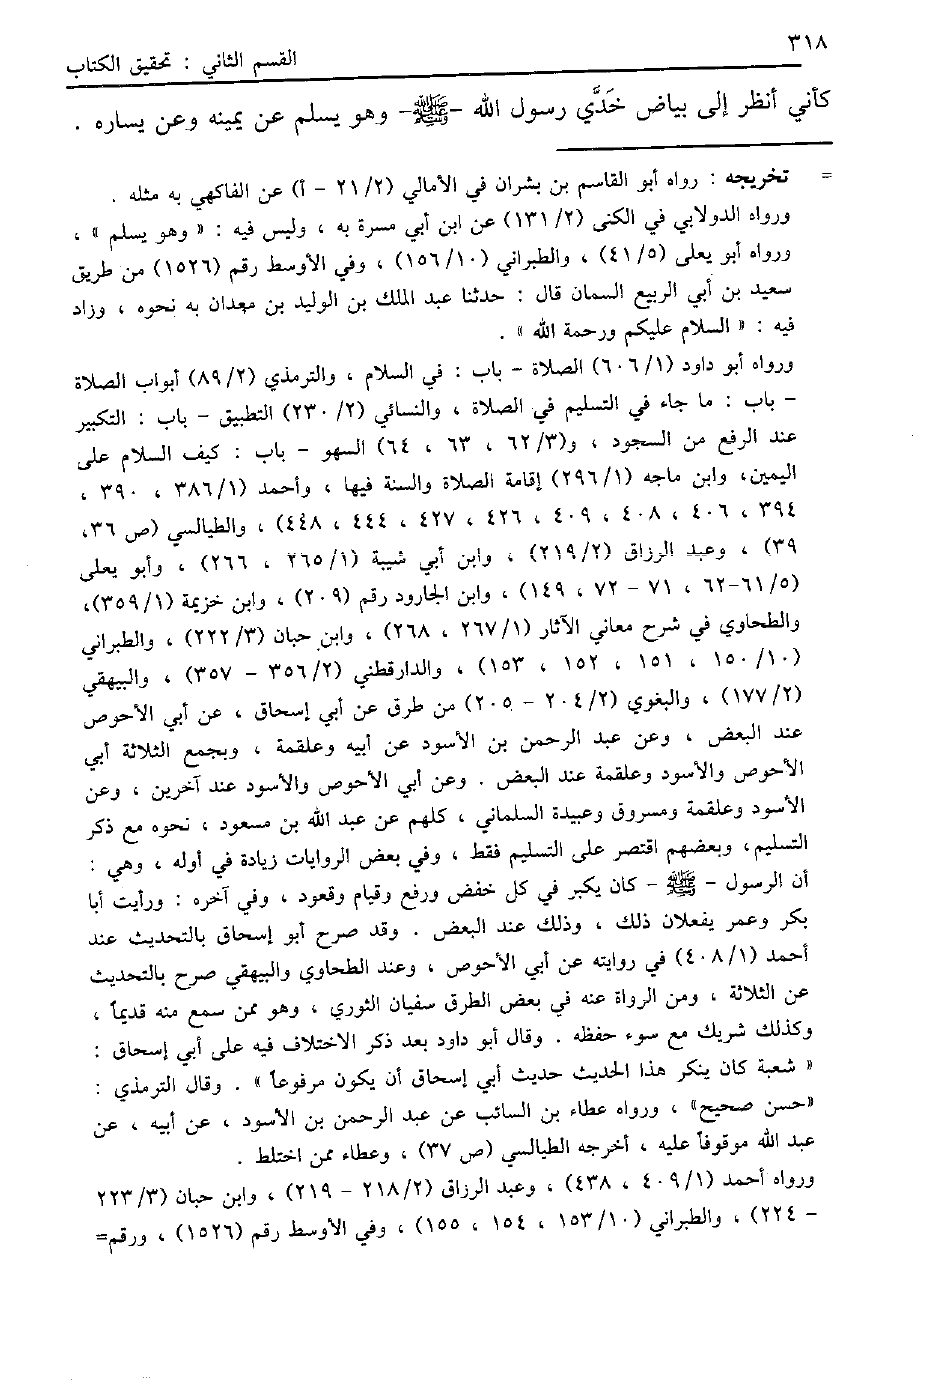 ٣١٨
القسم الثاني : تحقيق الكتاب
كأني أنظر إلى بياض خَدَّي رسول الله -ﷺ- وهو يسلم عن يمينه وعن يساره .
= تخريجه : رواه أبو القاسم بن بشران في الأمالي (٢١/٢ - أ) عن الفاكهي به مثله .
ورواه الدولابي في الكنى (١٣١/٢) عن ابن أبي مسرة به ، وليس فيه : « وهو يسلم » ،
ورواه أبو يعلى (٤١/٥) ، والطبراني (١٥٦/١٠) ، وفي الأوسط رقم (١٥٢٦) من طريق
سعيد بن أبي الربيع السمان قال : حدثنا عبد الملك بن الوليد بن معدان به نحوه ، وزاد
فيه : « السلام عليكم ورحمة الله » .
ورواه أبو داود (٦٠٦/١) الصلاة - باب : في السلام ، والترمذي (٨٩/٢) أبواب الصلاة
- باب : ما جاء في التسليم في الصلاة ، والنسائي (٢٣٠/٢) التطبيق - باب : التكبير
عند الرفع من السجود ، و(٦٢/٣ ، ٦٣ ، ٦٤) السهو - باب : كيف السلام على
اليمين، وابن ماجه (٢٩٦/١) إقامة الصلاة والسنة فيها ، وأحمد (٣٨٦/١ ، ٣٩٠ ،
٣٩٤ ، ٤٠٦ ، ٤٠٨ ، ٤٠٩ ، ٤٢٦ ، ٤٢٧ ، ٤٤٤ ، ٤٤٨) ، والطيالسي (ص ٣٦،
٣٩) ، وعبد الرزاق (٢١٩/٢) ، وابن أبي شيبة (٢٦٥/١ ، ٢٦٦) ، وأبو يعلى
(٦١/٥-٦٢ ، ٧١ - ٧٢ ، ١٤٩) ، وابن الجارود رقم (٢٠٩) ، وابن خزيمة (٣٥٩/١)،
والطحاوي في شرح معاني الآثار (٢٦٧/١ ، ٢٦٨) ، وابن حبان (٢٢٢/٣) ، والطبراني
(١٥٠/١٠ ، ١٥١ ، ١٥٢ ، ١٥٣) ، والدارقطني (٣٥٦/٢ - ٣٥٧) ، والبيهقي
(١٧٧/٢) ، والبغوي (٢٠٤/٢ - ٢٠٥) من طرق عن أبي إسحاق ، عن أبي الأحوص
عند البعض ، وعن عبد الرحمن بن الأسود عن أبيه وعلقمة ، وبجمع الثلاثة أبي
الأحوص والأسود وعلقمة عند البعض . وعن أبي الأحوص والأسود عند آخرين ، وعن
الأسود وعلقمة ومسروق وعبيدة السلماني ، كلهم عن عبد الله بن مسعود ، نحوه مع ذكر
التسليم، وبعضهم اقتصر على التسليم فقط ، وفي بعض الروايات زيادة في أوله ، وهي :
أن الرسول - ﷺ - كان يكبر في كل خفض ورفع وقيام وقعود ، وفي آخره : ورأيت أبا
بكر وعمر يفعلان ذلك ، وذلك عند البعض . وقد صرح أبو إسحاق بالتحديث عند
أحمد (٤٠٨/١) في روايته عن أبي الأحوص ، وعند الطحاوي والبيهقي صرح بالتحديث
عن الثلاثة ، ومن الرواة عنه في بعض الطرق سفيان الثوري ، وهو ممن سمع منه قديماً ،
وكذلك شريك مع سوء حفظه . وقال أبو داود بعد ذكر الاختلاف فيه على أبي إسحاق :
« شعبة كان ينكر هذا الحديث حديث أبي إسحاق أن يكون مرفوعاً » . وقال الترمذي :
«حسن صحيح» ، ورواه عطاء بن السائب عن عبد الرحمن بن الأسود ، عن أبيه ، عن
عبد الله موقوفاً عليه ، أخرجه الطيالسي (ص ٣٧) ، وعطاء ممن اختلط .
ورواه أحمد (٤٠٩/١ ، ٤٣٨) ، وعبد الرزاق (٢١٨/٢ - ٢١٩) ، وابن حبان (٢٢٣/٣
- ٢٢٤) ، والطبراني (١٥٣/١٠ ، ١٥٤ ، ١٥٥) ، وفي الأوسط رقم (١٥٢٦) ، ورقم=